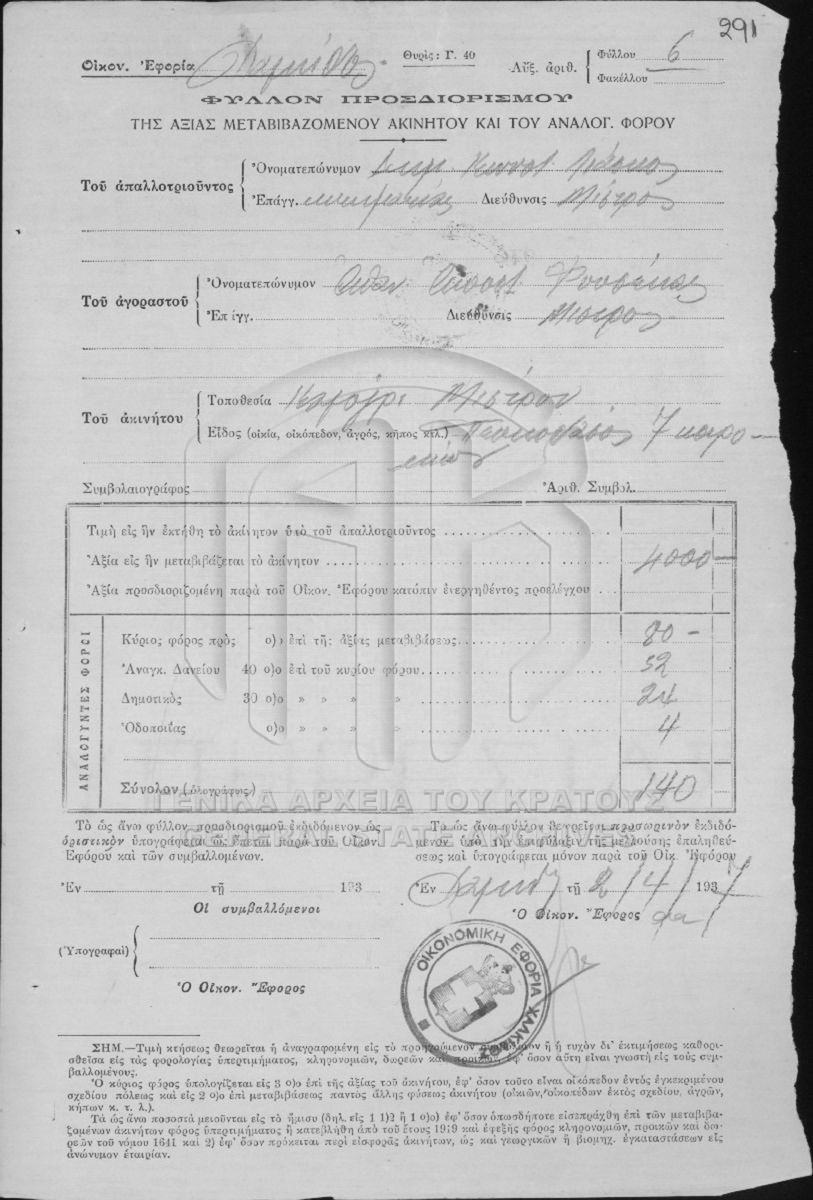 291
Οἰκον. Ἐφορία Χαλκίδος
Θυρὶς: Γ. 40
Αὔξ. ἀριθ. Φύλλου 6
Φακέλλου
ΦΥΛΛΟΝ ΠΡΟΣΔΙΟΡΙΣΜΟΥ
ΤΗΣ ΑΞΙΑΣ ΜΕΤΑΒΙΒΑΖΟΜΕΝΟΥ ΑΚΙΝΗΤΟΥ ΚΑΙ ΤΟΥ ΑΝΑΛΟΓ. ΦΟΡΟΥ
Τοῦ ἀπαλλοτριοῦντος
Ὀνοματεπώνυμον
Ἐπάγγ. Διεύθυνσις Μίστρος
Τοῦ ἀγοραστοῦ
Ὀνοματεπώνυμον Ἀθαν.
Ἐπ ίγγ. Διεύθυνσις Μίστρος
Τοῦ ἀκινήτου
Τοποθεσία Μίστρου
Εἶδος (οἰκία, οἰκόπεδον, ἀγρός, κῆπος κτλ.) 7
Συμβολαιογράφος Ἀριθ. Συμβολ.
Τιμὴ εἰς ἣν ἐκτήθη τὸ ἀκίνητον ὑπὸ τοῦ ἀπαλλοτριοῦντος
Ἀξία εἰς ἣν μεταβιβάζεται τὸ ἀκίνητον 4000 —
Ἀξία προσδιοριζομένη παρὰ τοῦ Οἰκον. Ἐφόρου κατόπιν ἐνεργηθέντος προελέγχου
ΑΝΑΛΟΓΟΥΝΤΕΣ ΦΟΡΟΙ
Κύριος φόρος πρὸς ο)ο ἐπὶ τῆς ἀξίας μεταβιβάσεως 80 —
Ἀναγκ. Δανείου 40 ο)ο ἐπὶ τοῦ κυρίου φόρου 32
Δημοτικὸς 30 ο)ο » » » 24
Ὁδοποιΐας ο)ο » » » 4
Σύνολον (ὁλογράφως) 140
ΓΕΝΙΚΑ ΑΡΧΕΙΑ ΤΟΥ ΚΡΑΤΟΥΣ
CENTRAL STATE ARCHIVES
Τὸ ὡς ἄνω φύλλον προσδιορισμοῦ ἐκδιδόμενον ὡς
ὁριστικὸν ὑπογράφεται ὡς ἕπεται παρὰ τοῦ Οἰκον.
Ἐφόρου καὶ τῶν συμβαλλομένων.
Ἐν τῇ 193
Οἱ συμβαλλόμενοι
(Ὑπογραφαὶ)
Ὁ Οἰκον. Ἔφορος
Τὸ ὡς ἄνω φύλλον θεωρεῖται προσωρινὸν ἐκδιδό-
μενον ὑπὸ τὴν ἐπιφύλαξιν τῆς μελλούσης ἐπαληθεύ-
σεως καὶ ὑπογράφεται μόνον παρὰ τοῦ Οἰκ. Ἐφόρου
Ἐν Χαλκίδι τῇ 2/4/1937
Ὁ Οἰκον. Ἔφορος
ΟΙΚΟΝΟΜΙΚΗ ΕΦΟΡΙΑ ΧΑΛΚΙΔΟΣ
ΣΗΜ.—Τιμὴ κτήσεως θεωρεῖται ἡ ἀναγραφομένη εἰς τὸ προηγούμενον συμβόλαιον ἢ ἡ τυχὸν δι' ἐκτιμήσεως καθορι-
σθεῖσα εἰς τὰς φορολογίας ὑπερτιμήματος, κληρονομιῶν, δωρεῶν καὶ προικῶν, ἐφ' ὅσον αὕτη εἶναι γνωστὴ εἰς τοὺς συμ-
βαλλομένους.
Ὁ κύριος φόρος ὑπολογίζεται εἰς 3 ο)ο ἐπὶ τῆς ἀξίας τοῦ ἀκινήτου, ἐφ' ὅσον τοῦτο εἶναι οἰκόπεδον ἐντὸς ἐγκεκριμένου
σχεδίου πόλεως καὶ εἰς 2 ο)ο ἐπὶ μεταβιβάσεως παντὸς ἄλλης φύσεως ἀκινήτου (οἰκιῶν, οἰκοπέδων ἐκτὸς σχεδίου, ἀγρῶν,
κήπων κ. τ. λ.).
Τὰ ὡς ἄνω ποσοστὰ μειοῦνται εἰς τὸ ἥμισυ (δηλ. εἰς 1 1)2 ἢ 1 ο)ο) ἐφ' ὅσον ὁπωσδήποτε εἰσεπράχθη ἐπὶ τῶν μεταβιβα-
ζομένων ἀκινήτων φόρος ὑπερτιμήματος ἢ κατεβλήθη ἀπὸ τοῦ ἔτους 1919 καὶ ἐφεξῆς φόρος κληρονομιῶν, προικῶν καὶ δω-
ρεῶν τοῦ νόμου 1641 καὶ 2) ἐφ' ὅσον πρόκειται περὶ εἰσφορᾶς ἀκινήτων, ὡς καὶ γεωργικῶν ἢ βιομηχ. ἐγκαταστάσεων εἰς
ἀνώνυμον ἑταιρίαν.